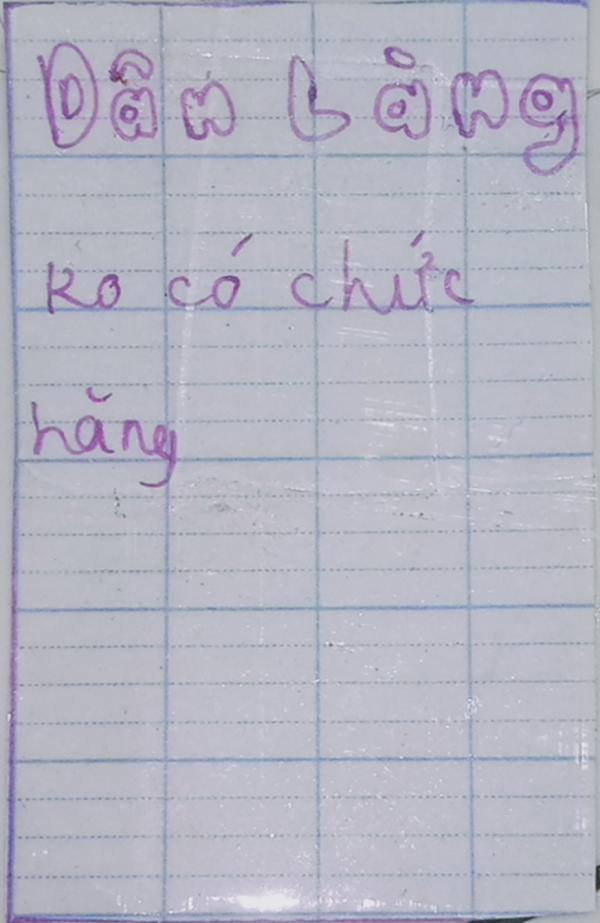 Dân Làng
ko có chức
năng